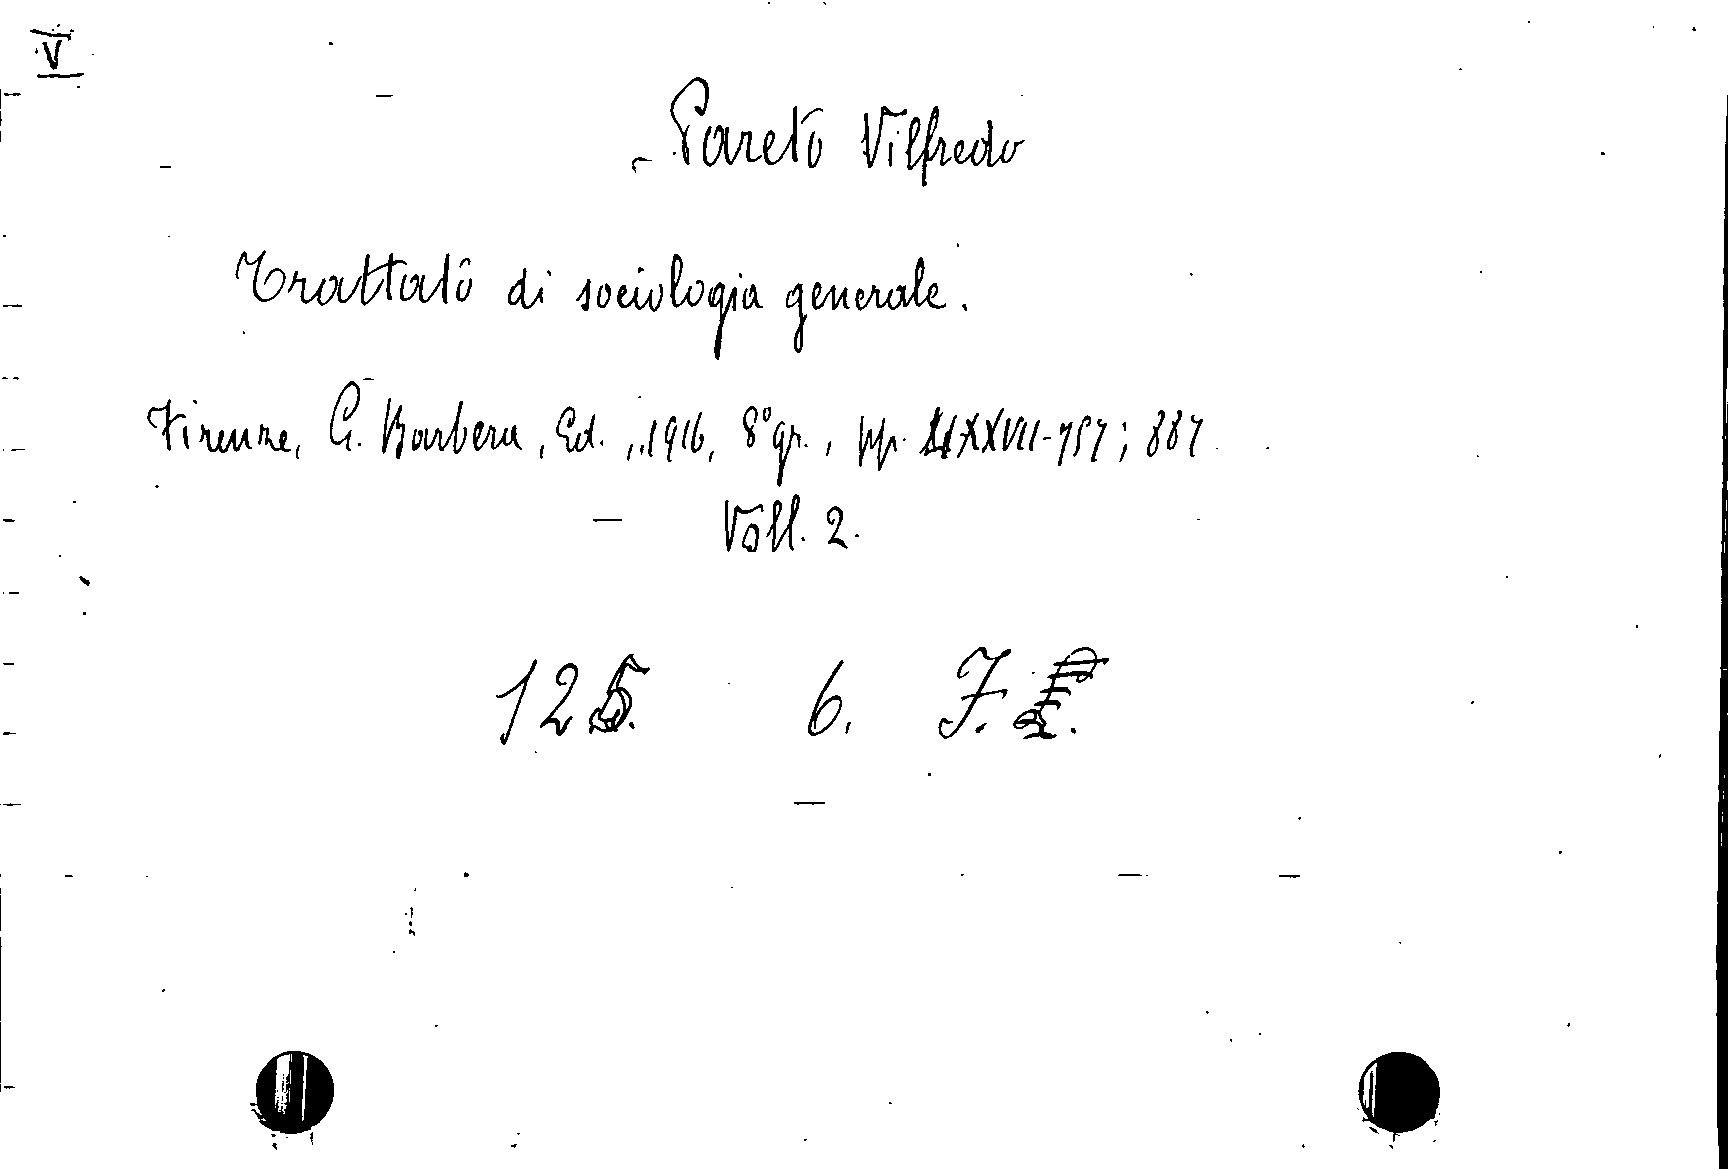 V
Pareto Vilfredo
Trattato di sociologia generale.
Firenze, G. Barbera, Ed., 1916, 8° gr., pp. XXVII-757; 887
Voll. 2.
125. 6. F.